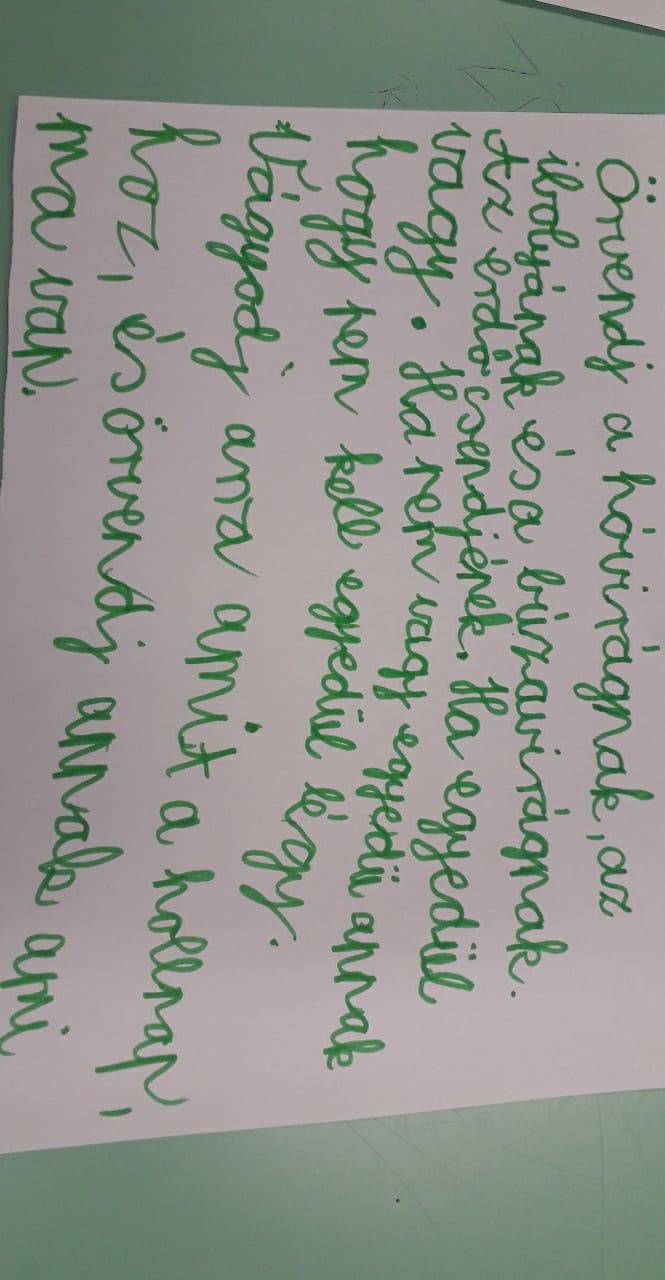 Örvendj a hóvirágnak, az
ibolyának és a búzavirágnak.
Az erdő csendjének. Ha egyedül
vagy. Ha nem vagy egyedül annak
hogy nem kell egyedül légy.
Vágyodj arra amit a hollnap
hoz, és örvendj annak ami
ma van.